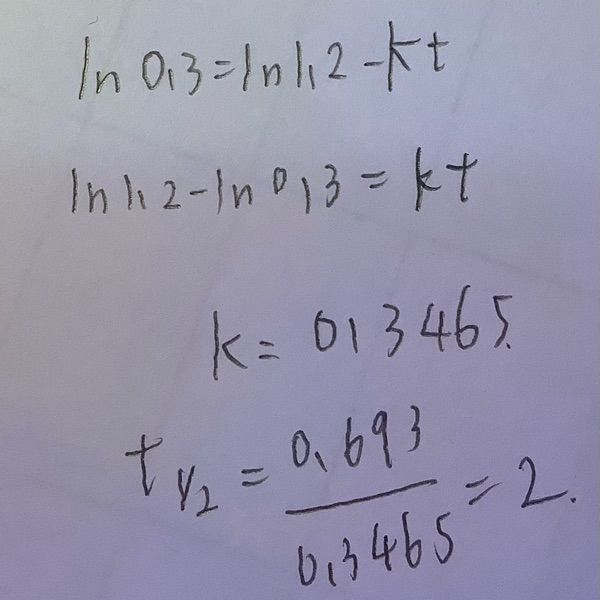 ln 0,3 = ln 1,2 - kt
ln 1,2 - ln 0,3 = kt
k = 0,3465.
t 1/2 = 0,693 / 0,3465 = 2.